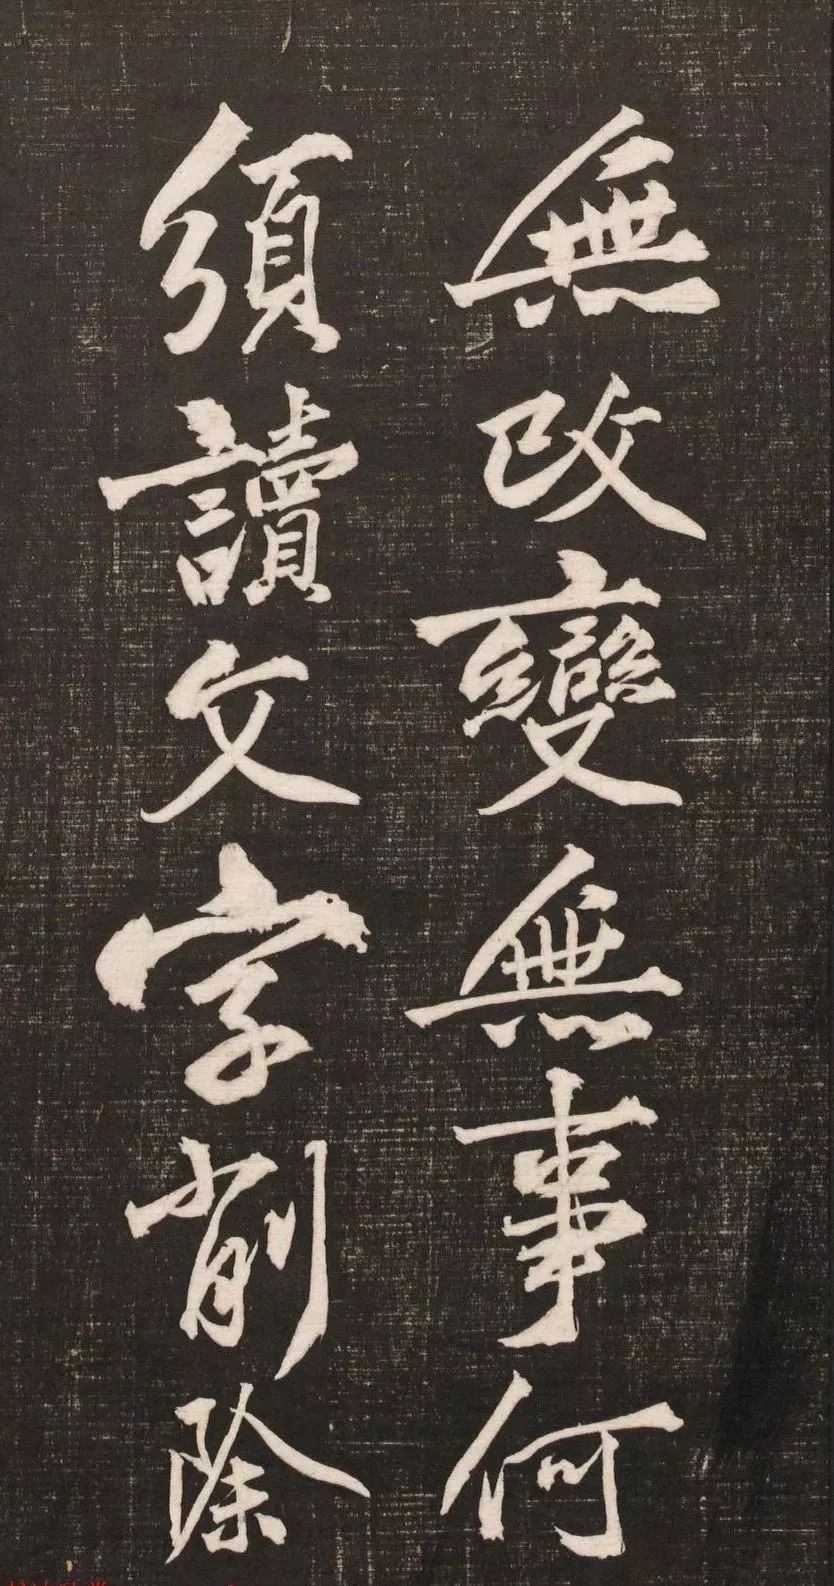 無改變無事何
須讀文字削除